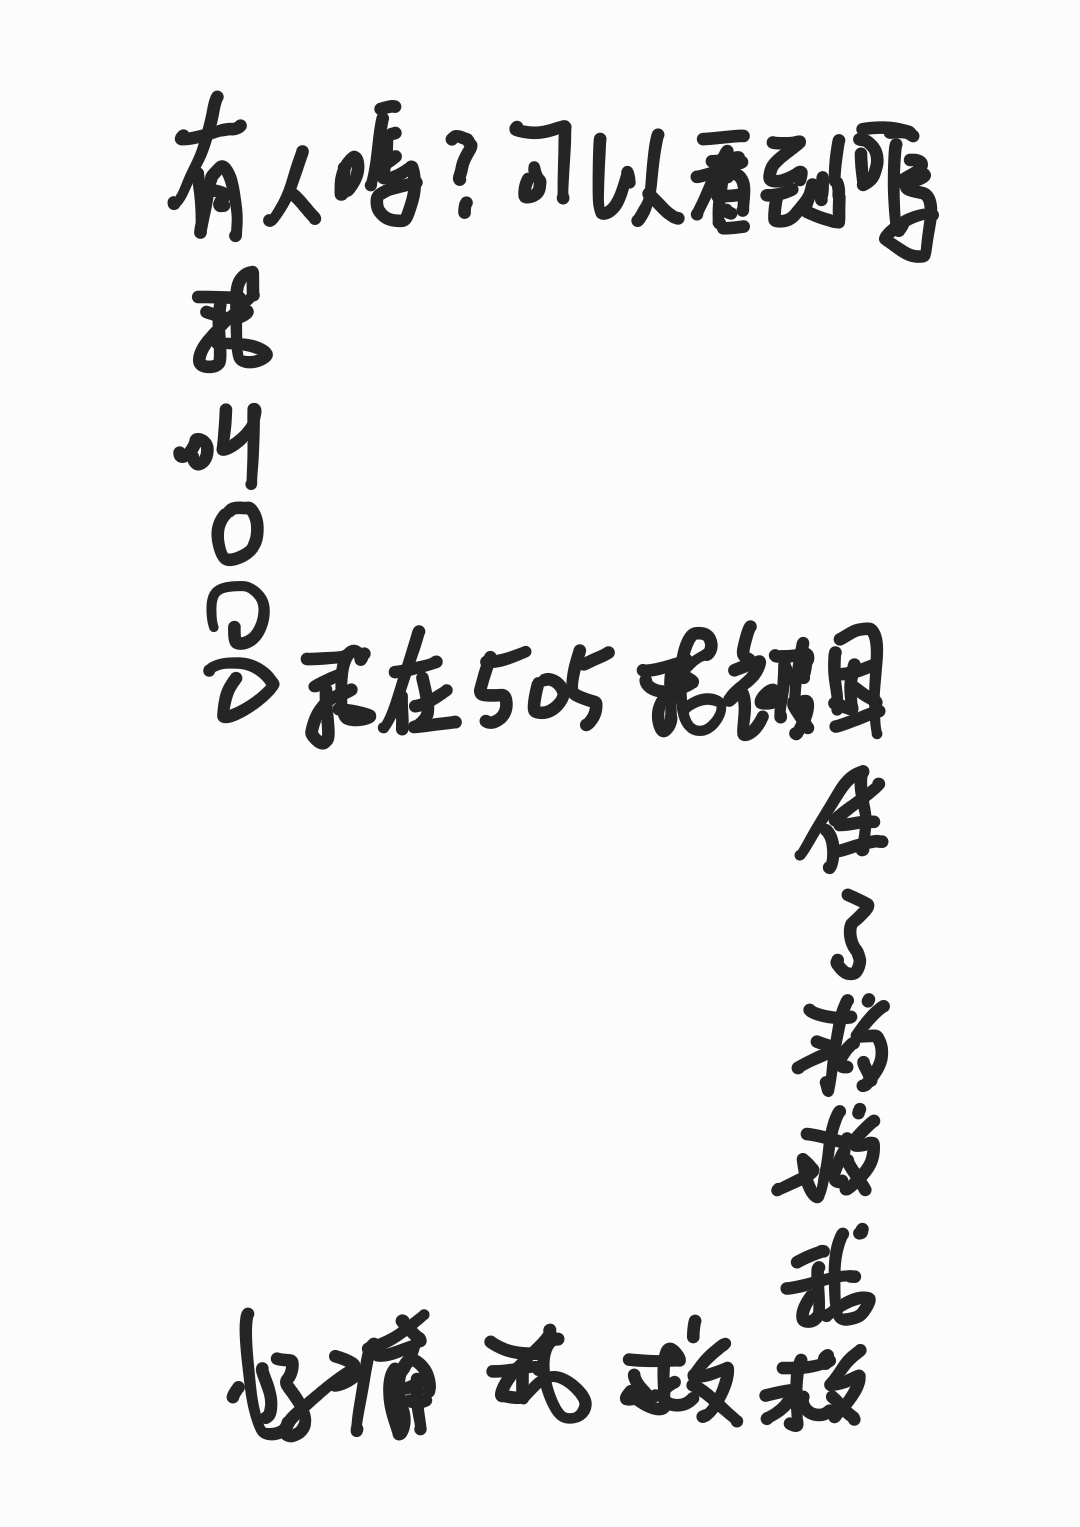 有人嗎？可以看到嗎
我叫000
我在505 我被困
住了救救我
救救我好痛